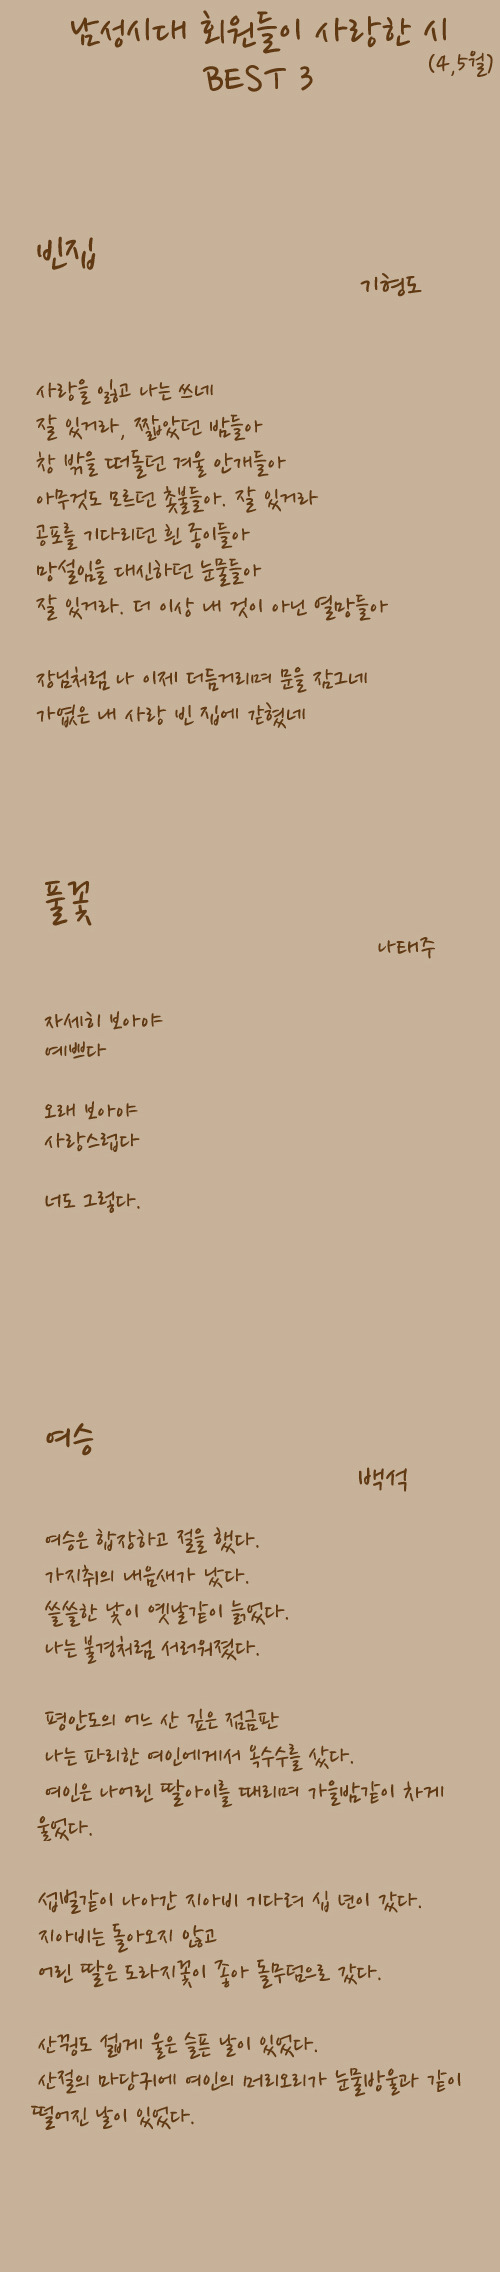 남성시대 회원들이 사랑한 시
(4,5월)
BEST 3
빈집
기형도
사랑을 잃고 나는 쓰네
잘 있거라, 짧았던 밤들아
창 밖을 떠돌던 겨울 안개들아
아무것도 모르던 촛불들아. 잘 있거라
공포를 기다리던 흰 종이들아
망설임을 대신하던 눈물들아
잘 있거라. 더 이상 내 것이 아닌 열망들아
장님처럼 나 이제 더듬거리며 문을 잠그네
가엾은 내 사랑 빈 집에 갇혔네
풀꽃
나태주
자세히 보아야
예쁘다
오래 보아야
사랑스럽다
너도 그렇다.
여승
백석
여승은 합장하고 절을 했다.
가지취의 내음새가 났다.
쓸쓸한 낯이 옛날같이 늙었다.
나는 불경처럼 서러워졌다.
평안도의 어느 산 깊은 점금판
나는 파리한 여인에게서 옥수수를 샀다.
여인은 나어린 딸아이를 때리며 가을밤같이 차게
울었다.
섭벌같이 나아간 지아비 기다려 십 년이 갔다.
지아비는 돌아오지 않고
어린 딸은 도라지꽃이 좋아 돌무덤으로 갔다.
산꿩도 섧게 울은 슬픈 날이 있었다.
산절의 마당귀에 여인의 머리오리가 눈물방울과 같이
떨어진 날이 있었다.